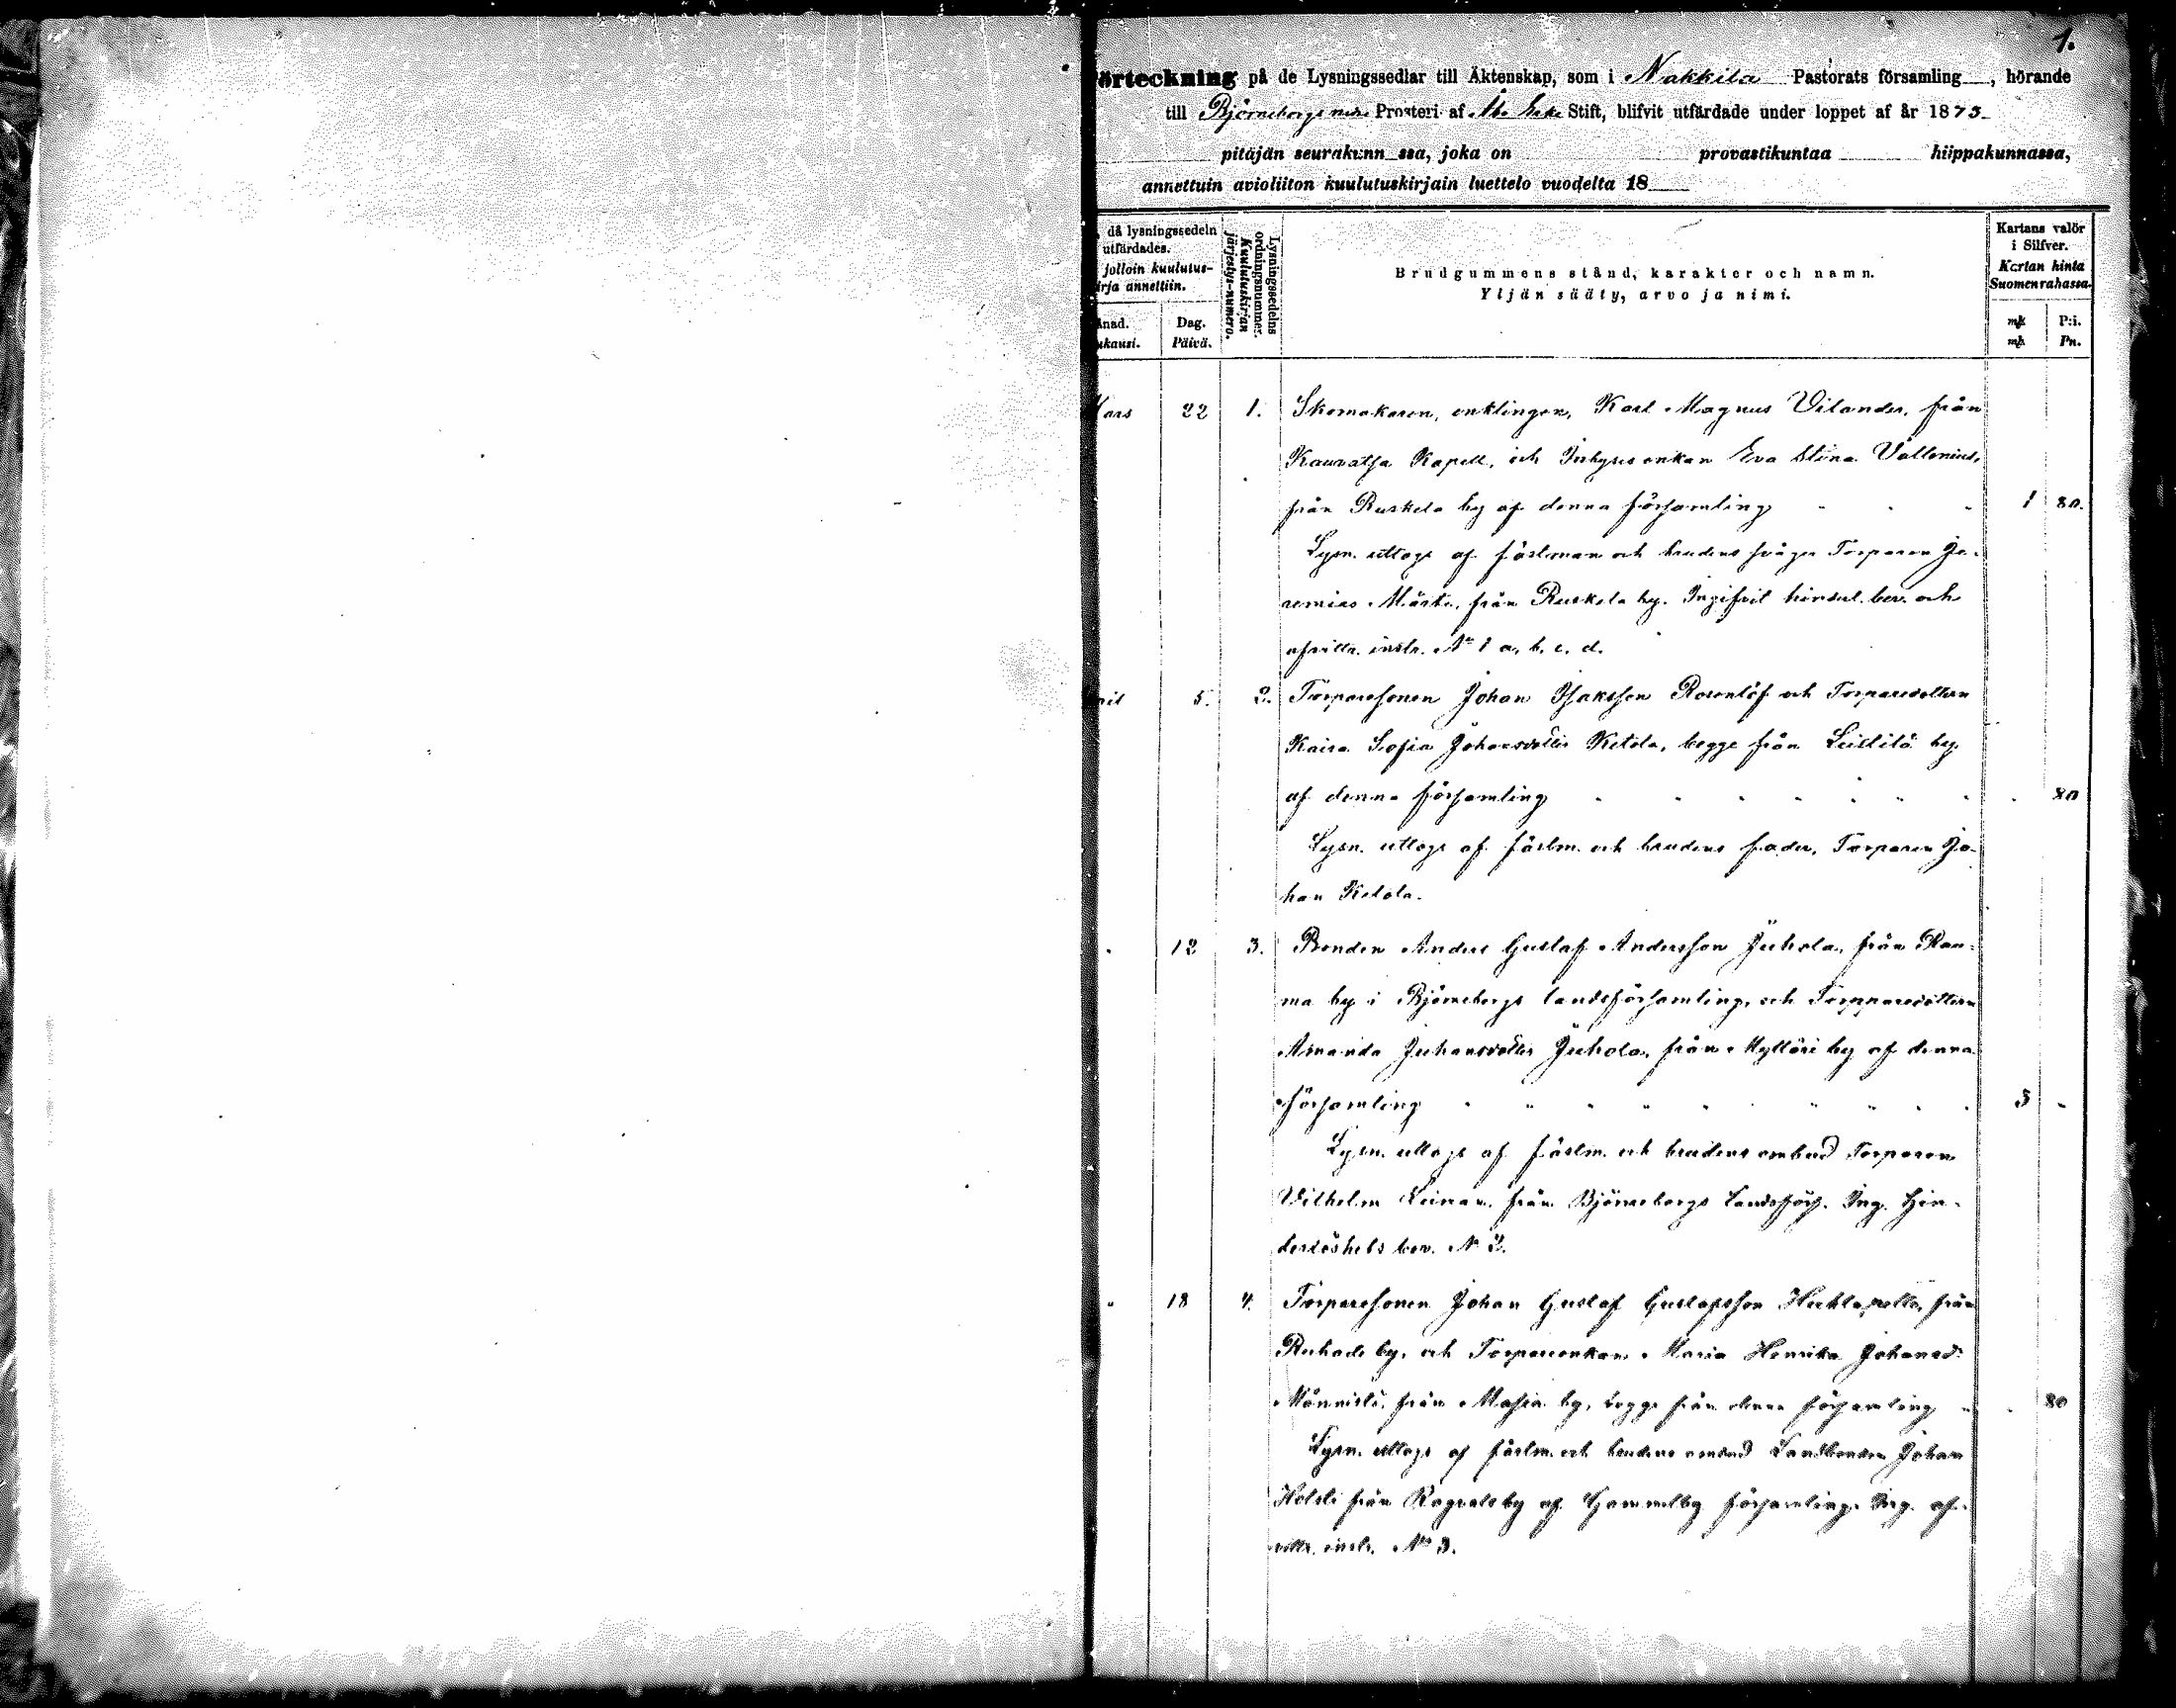 1.
örteckning på de Lysningssedlar till Äktenskap, som i Nakkila Pastorats församling, hörande
till Björneborgs nedre Prosteri af Åbo Erke Stift, blifvit utfärdade under loppet af år 1875
pitäjän seurakunn ssa, joka on provastikuntaa hiippakunnassa,
annettuin avioliiton kuulutuskirjain luettelo vuodelta 18
då lysningssedeln
utfärdades.
jolloin kuulutus-
irja annettiin.
Lysningssedelns
ordningsnummer.
Kuulutuskirjan
järjestys-numero.
Brudgummens stånd, karakter och namn.
Yljän sääty, arvo ja nimi.
Kartans valör
i Silfver.
Kartan hinta
Suomenrahassa.
ånad. Dag. mk P:i.
ukausi. Päivä. mk Pn.
Mars 22 1. Skomakaren, enklingen, Karl Magnus Vilander, från
Kauvatsa Kapell, och Inhyses enkan Eva Stina Vallenius,
från Ruskela by af denna församling 1 80.
Lysn. uttogs af fästman och brudens svåger Torparen Je-
remias Märti, från Ruskela by. Ingifvit hinsul. bev. och
afvittr. instr. No 1 a, b, c, d.
ril 5. 2. Torparesonen Johan Isaksson Rosenlöf och Torparedottern
Kaisa Sofia Johansdotter Ketola, begge från Leistilä by
af denna församling 80
Lysn. uttogs af fästm. och brudens fader, Torparen Jo-
han Ketola.
" 12 3. Bonden Anders Gustaf Andersson Juhola, från Rau-
ma by i Björneborgs landsförsamling, och Torpparedottern
Amanda Juhansdotter Juhola, från Mylläri by af denna
församling 3 "
Lysn. uttogs af fästm. och brudens ombud Torparen
Vilhelm Leinan från Björneborgs Landsförs. Ing. Hin-
derlöshets bev. No 2.
" 18 4. Torparesonen Johan Gustaf Gustafsson Huhtapelto, från
Ruhade by, och Torpareenkan Maria Henrika Johansd:
Männistö, från Masia by, begge från denna församling 80
Lysn. uttogs af fästm. och brudens ombud Landbonden Johan
Holsti från Ragvals by af Gammelby församling. Ing. af-
vittr. instr. No 3.